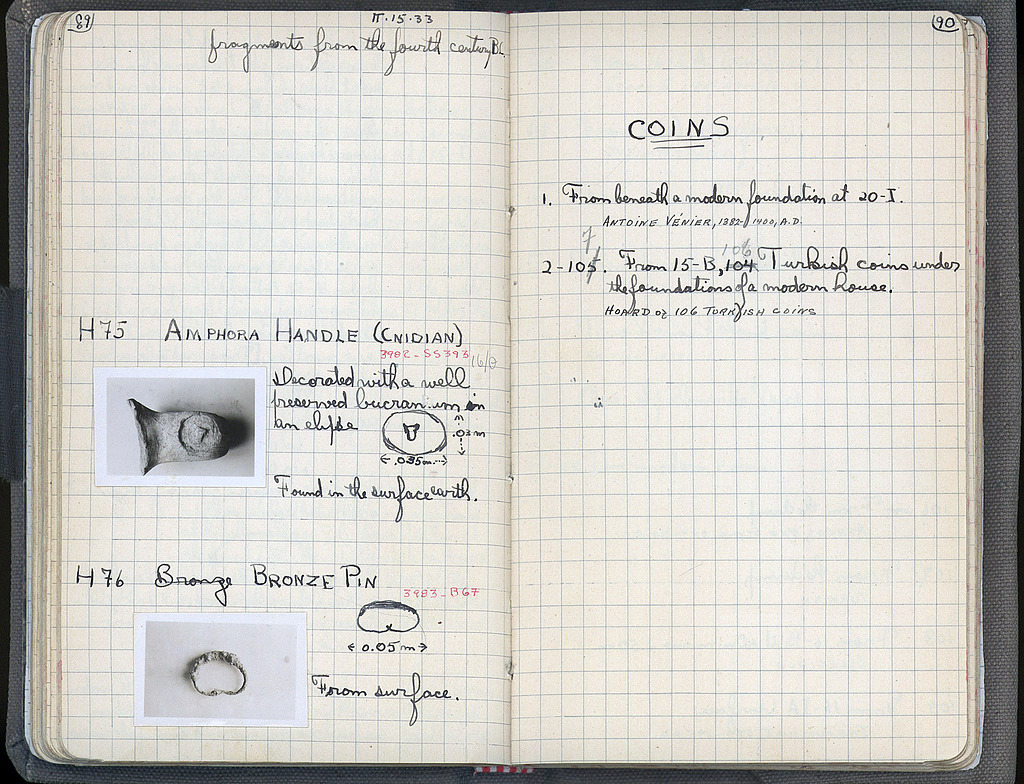 89
II.15.33
fragments from the fourth century BC.
H75 AMPHORA HANDLE (CNIDIAN)
3982-SS393
Decorated with a well
preserved bucranium in
an elipse
.03m
.035m.
Found in the surface earth.
H76 Bronze BRONZE PIN
3983-B67
0.05m
From surface.
90
COINS
1. From beneath a modern foundation at 20-I.
ANTOINE VÉNIER, 1382-1400, A.D.
7
106
2-105. From 15-B, 104 Turkish coins under
the foundations of a modern house.
HOARD OF 106 TURKISH COINS